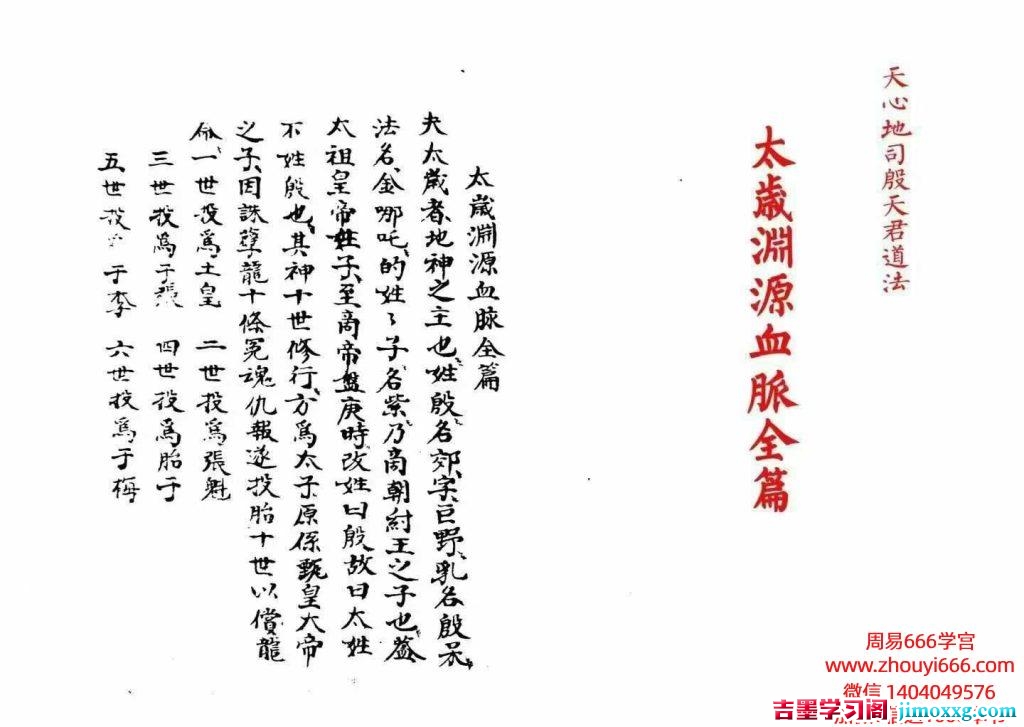 天心地司殷天君道法
太歲淵源血脈全篇
太歲淵源血脉全篇
夫太歲者地神之主也姓殷名郊字巨野乳名殷
法名金哪吒的姓々子名紫乃商朝紂王之子也蓋
太祖皇帝姓子至商帝盤庚時改姓曰殷故曰太姓
不姓殷也其神十世修行方爲太子原係甄皇大帝
之子因誅孽龍十條冤魂仇報遂投胎十世以償龍
命一世投爲土皇 二世投爲張魁
三世投爲于張 四世投爲胎于
五世投 于李 六世投爲于梅
周易666学宫
www.zhouyi666.com
微信 1404049576
吉墨学习阁 jimoxxg.com